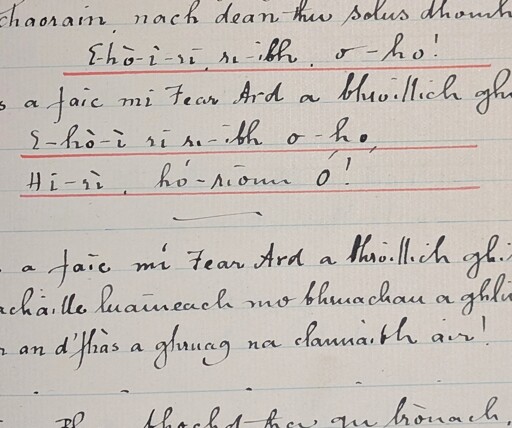 chaorain, nach dean thu solus dhomh
E-hò-ì-rì, ri-ibh, o-ho!
a faic mi Fear Ard a bhroillich
E-hò-ì rì ri-ibh o-ho,
Hi-rì, hó-rionn Ó!
a faic mi Fear Ard a bhroillich
luaineach mo bhruachan a
an d'fhàs a ghruag na clannaibh air!
thachd tha gu brònach,